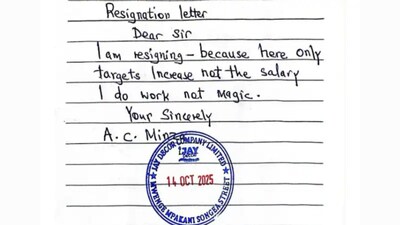 Resignation letter
Dear Sir
I am resigning – because here only
targets Increase not the salary
I do work not magic.
Your Sincerely
A. C. Minza
JAY DECOR COMPANY LIMITED
JAY
14 OCT 2025
MPAKANI SONGEA STREET